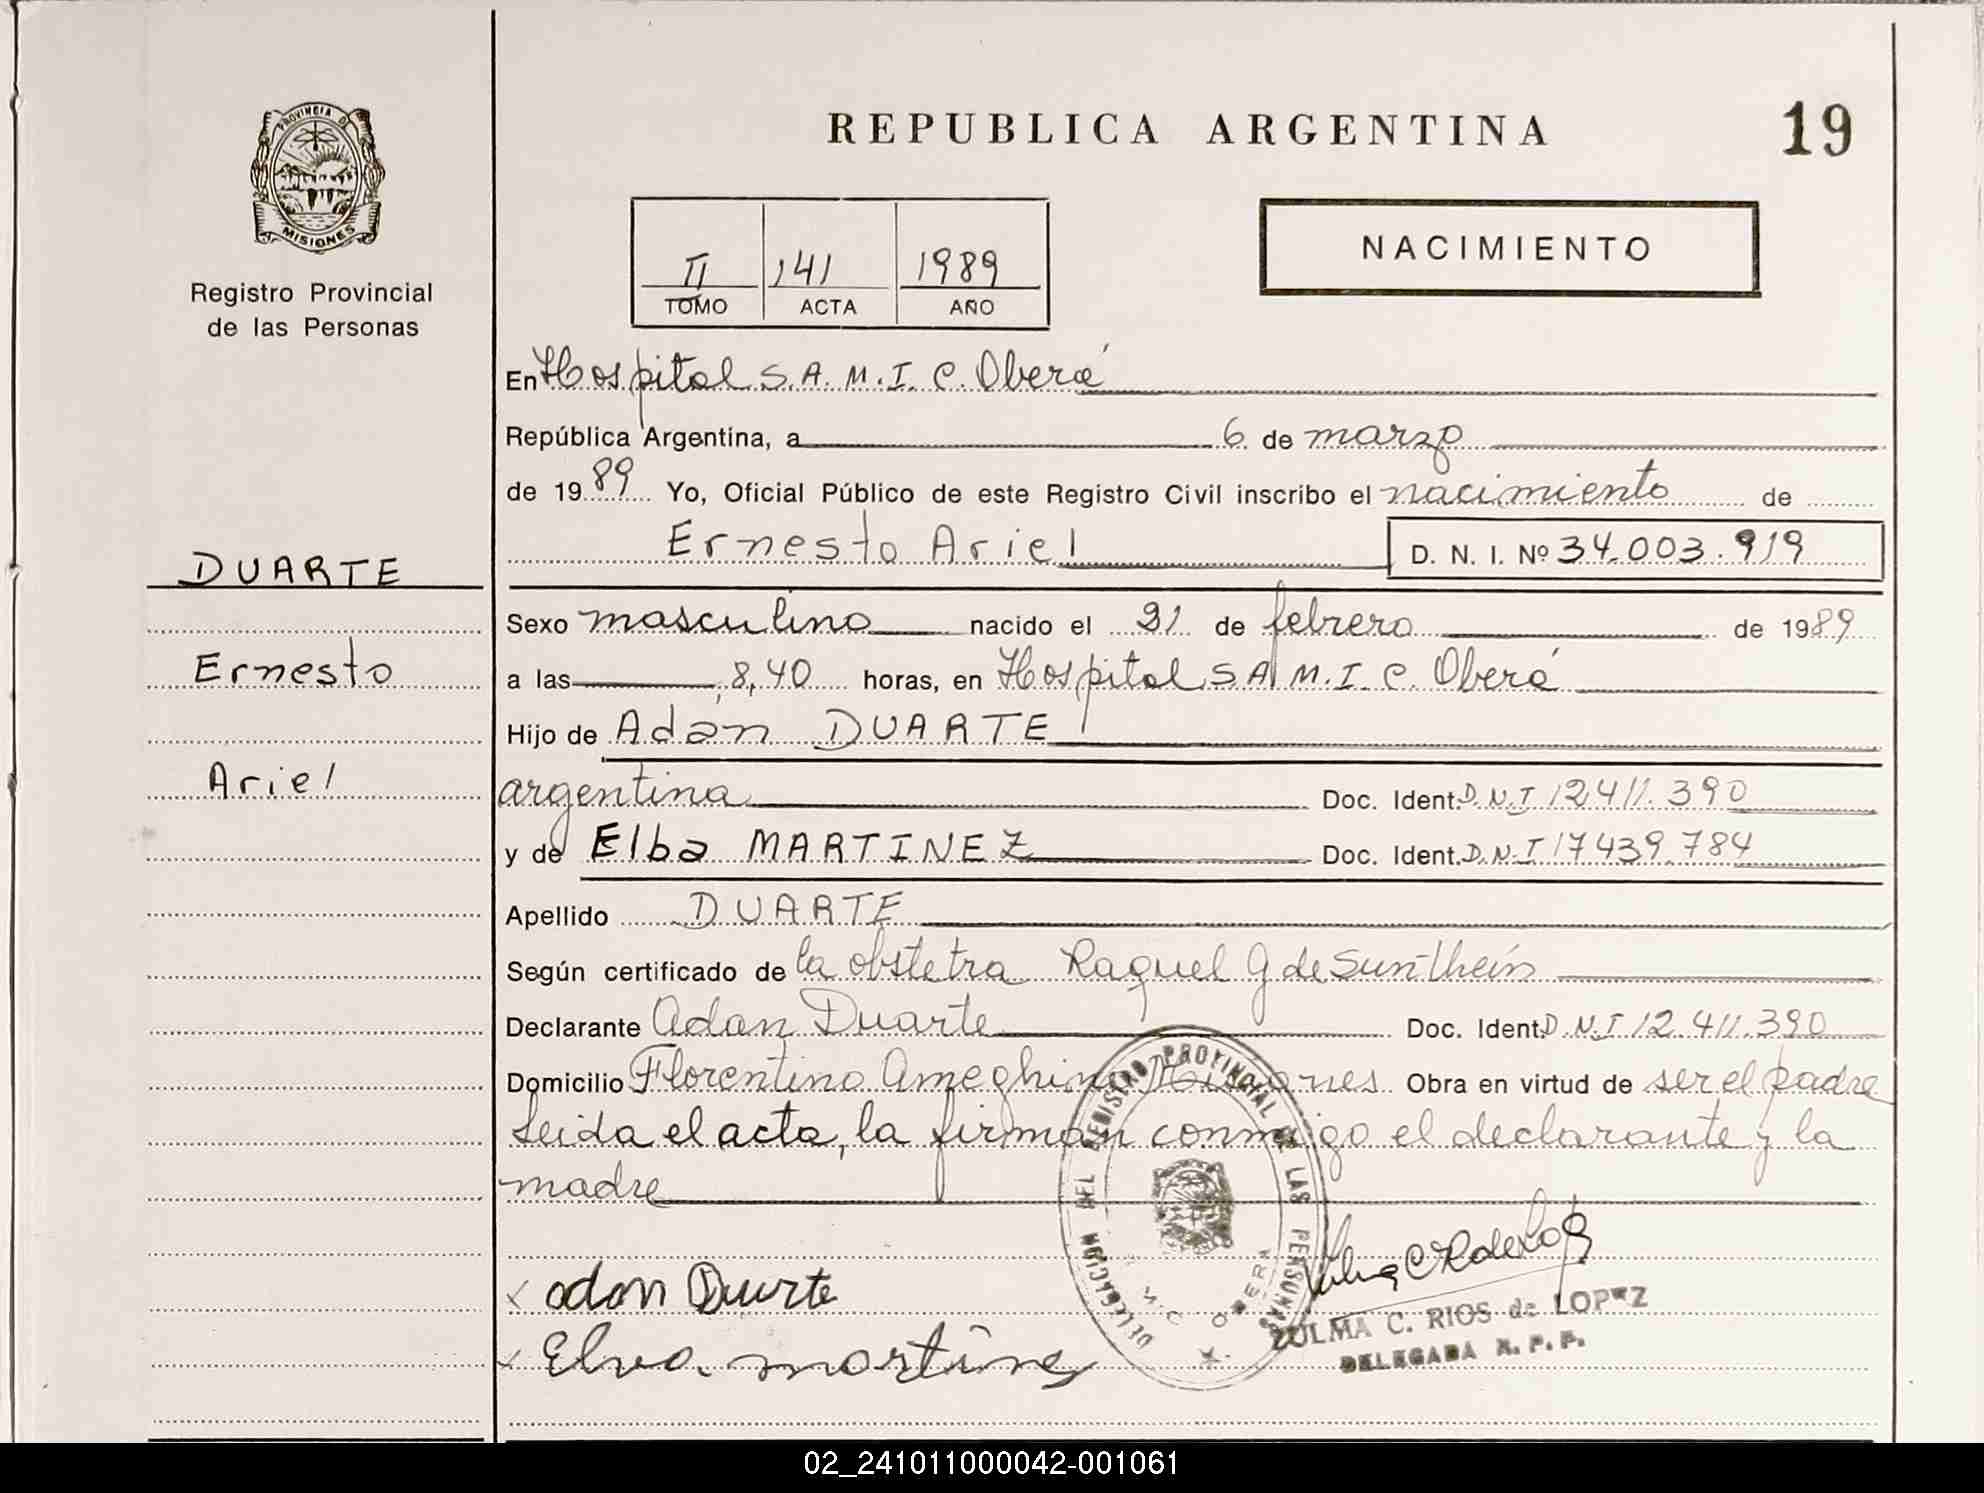 PROVINCIA DE
MISIONES
Registro Provincial
de las Personas
DUARTE
Ernesto
Ariel
REPUBLICA ARGENTINA
19
II 141 1989
TOMO ACTA AÑO
NACIMIENTO
En Hospital S.A.M.I.C. Oberá
República Argentina, a 6 de marzo
de 1989 Yo, Oficial Público de este Registro Civil inscribo el nacimiento de
Ernesto Ariel D. N. I. Nº 34.003.919
Sexo masculino nacido el 21 de febrero de 1989
a las 8,40 horas, en Hospital S.A.M.I.C. Oberá
Hijo de Adán DUARTE
argentina Doc. Ident. D.N.I 12.411.390
y de Elba MARTINEZ Doc. Ident. D.N.I 17439.784
Apellido DUARTE
Según certificado de la obstetra Raquel G de
Declarante Adan Duarte Doc. Ident. D.N.I 12.411.390
Domicilio Florentino Ameghino Misiones Obra en virtud de ser el padre
Leida el acta, la firman conmigo el declarante y la
madre
DELEGACION DEL REGISTRO PROVINCIAL DE LAS PERSONAS
OBERA
x adan Duarte
x Elva martines
ZULMA C. RIOS de LOPEZ
DELEGADA R. P. P.
02_241011000042-001061